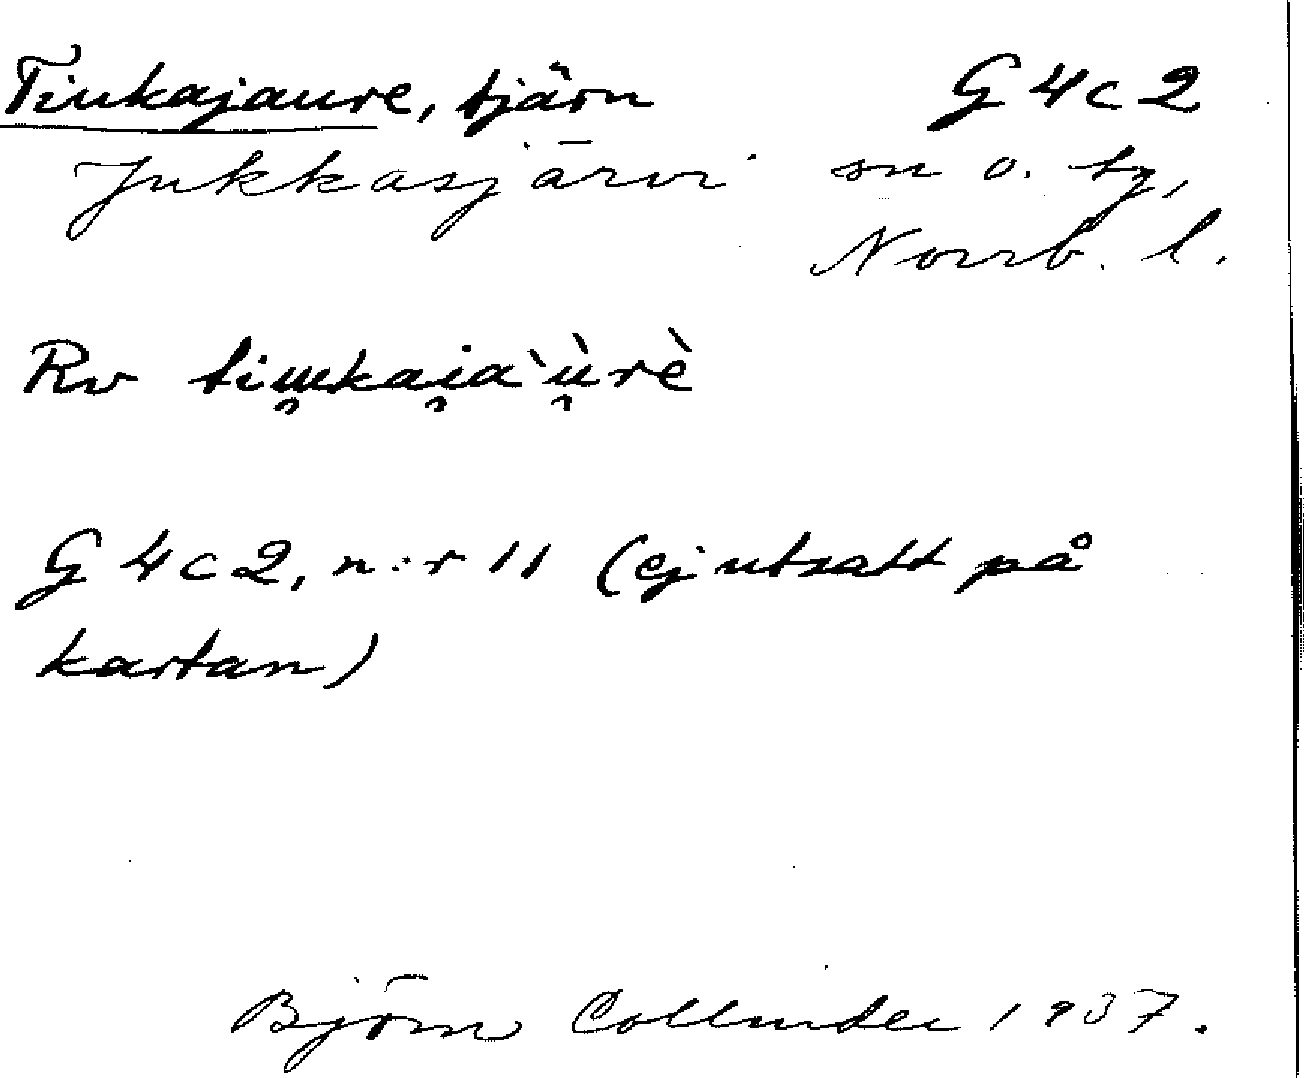 Tiukajaure, tjärn G 4 c 2
Jukkasjärvi sn o. tg,
Norrb. l.
Rv
G 4 c 2, n:r 11 (ej utsatt på
kartan)
Björn Collinder 1937.